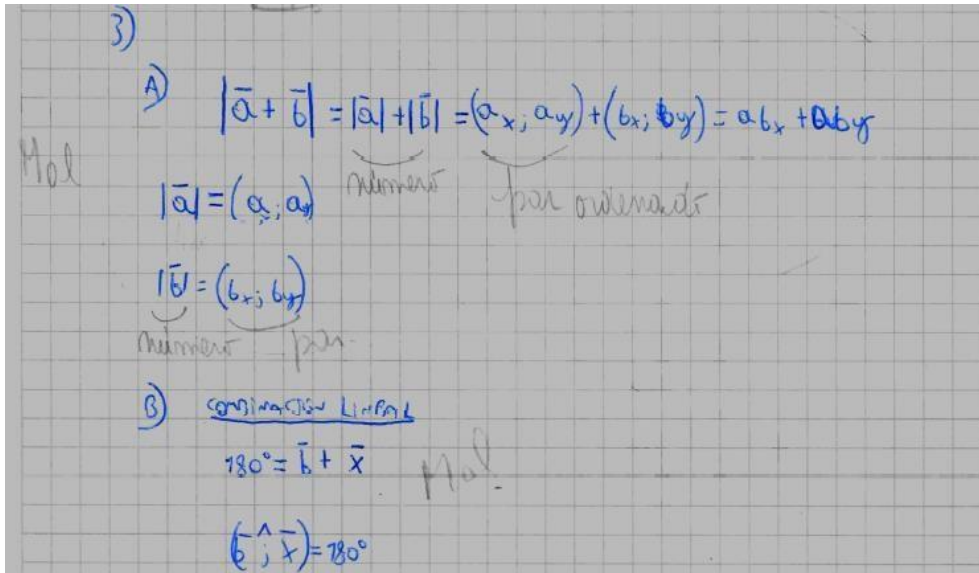 3)
A) |ā + b̄| = |ā| + |b̄| = (ax; ay) + (bx; by) = abx + aby
Mal
número par ordenado
|ā| = (a; ay)
|b̄| = (bx; by)
número par
B) COMBINACIÓN LINEAL
180° = b̄ + x̄
Mal
(b̄ ^; x̄) = 180°